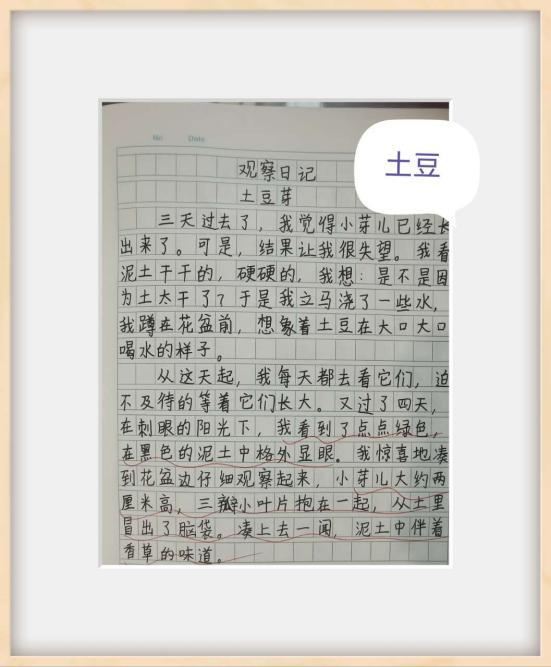 土豆
No. Date
观察日记
土豆芽
三天过去了，我觉得小芽儿已经长
出来了。可是，结果让我很失望。我看
泥土干干的，硬硬的，我想：是不是因
为土太干了？于是我立马浇了一些水，
我蹲在花盆前，想象着土豆在大口大口
喝水的样子。
从这天起，我每天都去看它们，迫
不及待的等着它们长大。又过了四天，
在刺眼的阳光下，我看到了点点绿色，
在黑色的泥土中格外显眼。我惊喜地凑
到花盆边仔细观察起来，小芽儿大约两
厘米高，三瓣小叶片抱在一起，从土里
冒出了脑袋。凑上去一闻，泥土中伴着
香草的味道。